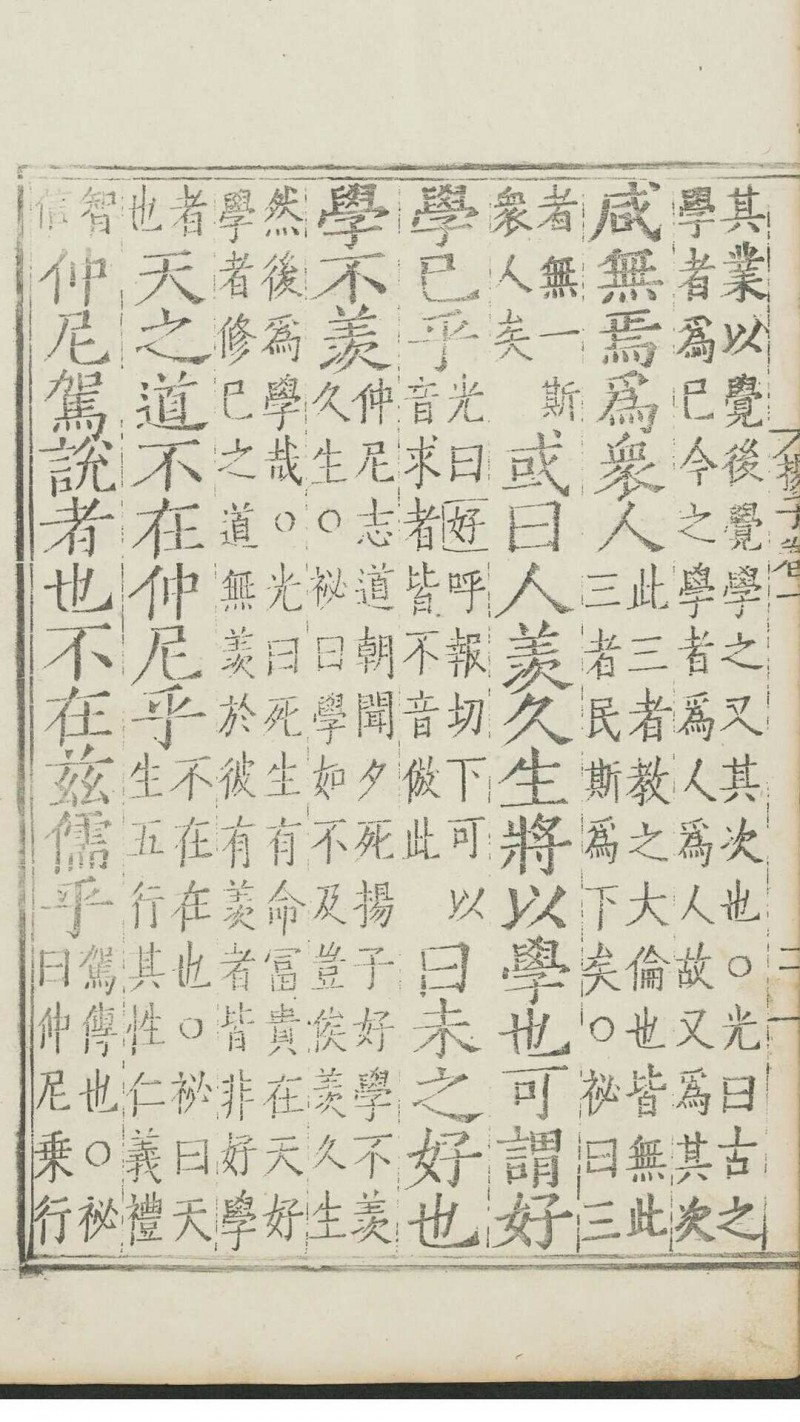 其業以覺後覺學之又其次也○光曰古之
學者爲已今之學者爲人爲人故又爲其次
咸無焉爲衆人
此三者教之大倫也皆無此
三者民斯爲下矣○祕曰三
者無一斯
衆人矣
或曰人羨久生將以學也可謂好
學已乎
光曰好呼報切下可以
音求者皆不音倣此
曰未之好也
學不羨
仲尼志道朝聞夕死揚子好學不羨
久生○祕曰學如不及豈俟羨久生
然後爲學哉○光曰死生有命富貴在天好
學者修已之道無羨於彼有羨者皆非好學
者
也
天之道不在仲尼乎
不在在也○祕曰天
生五行其性仁義禮
智
信
仲尼駕說者也不在茲儒乎
駕傳也○祕
曰仲尼乗行
揚子卷一
二